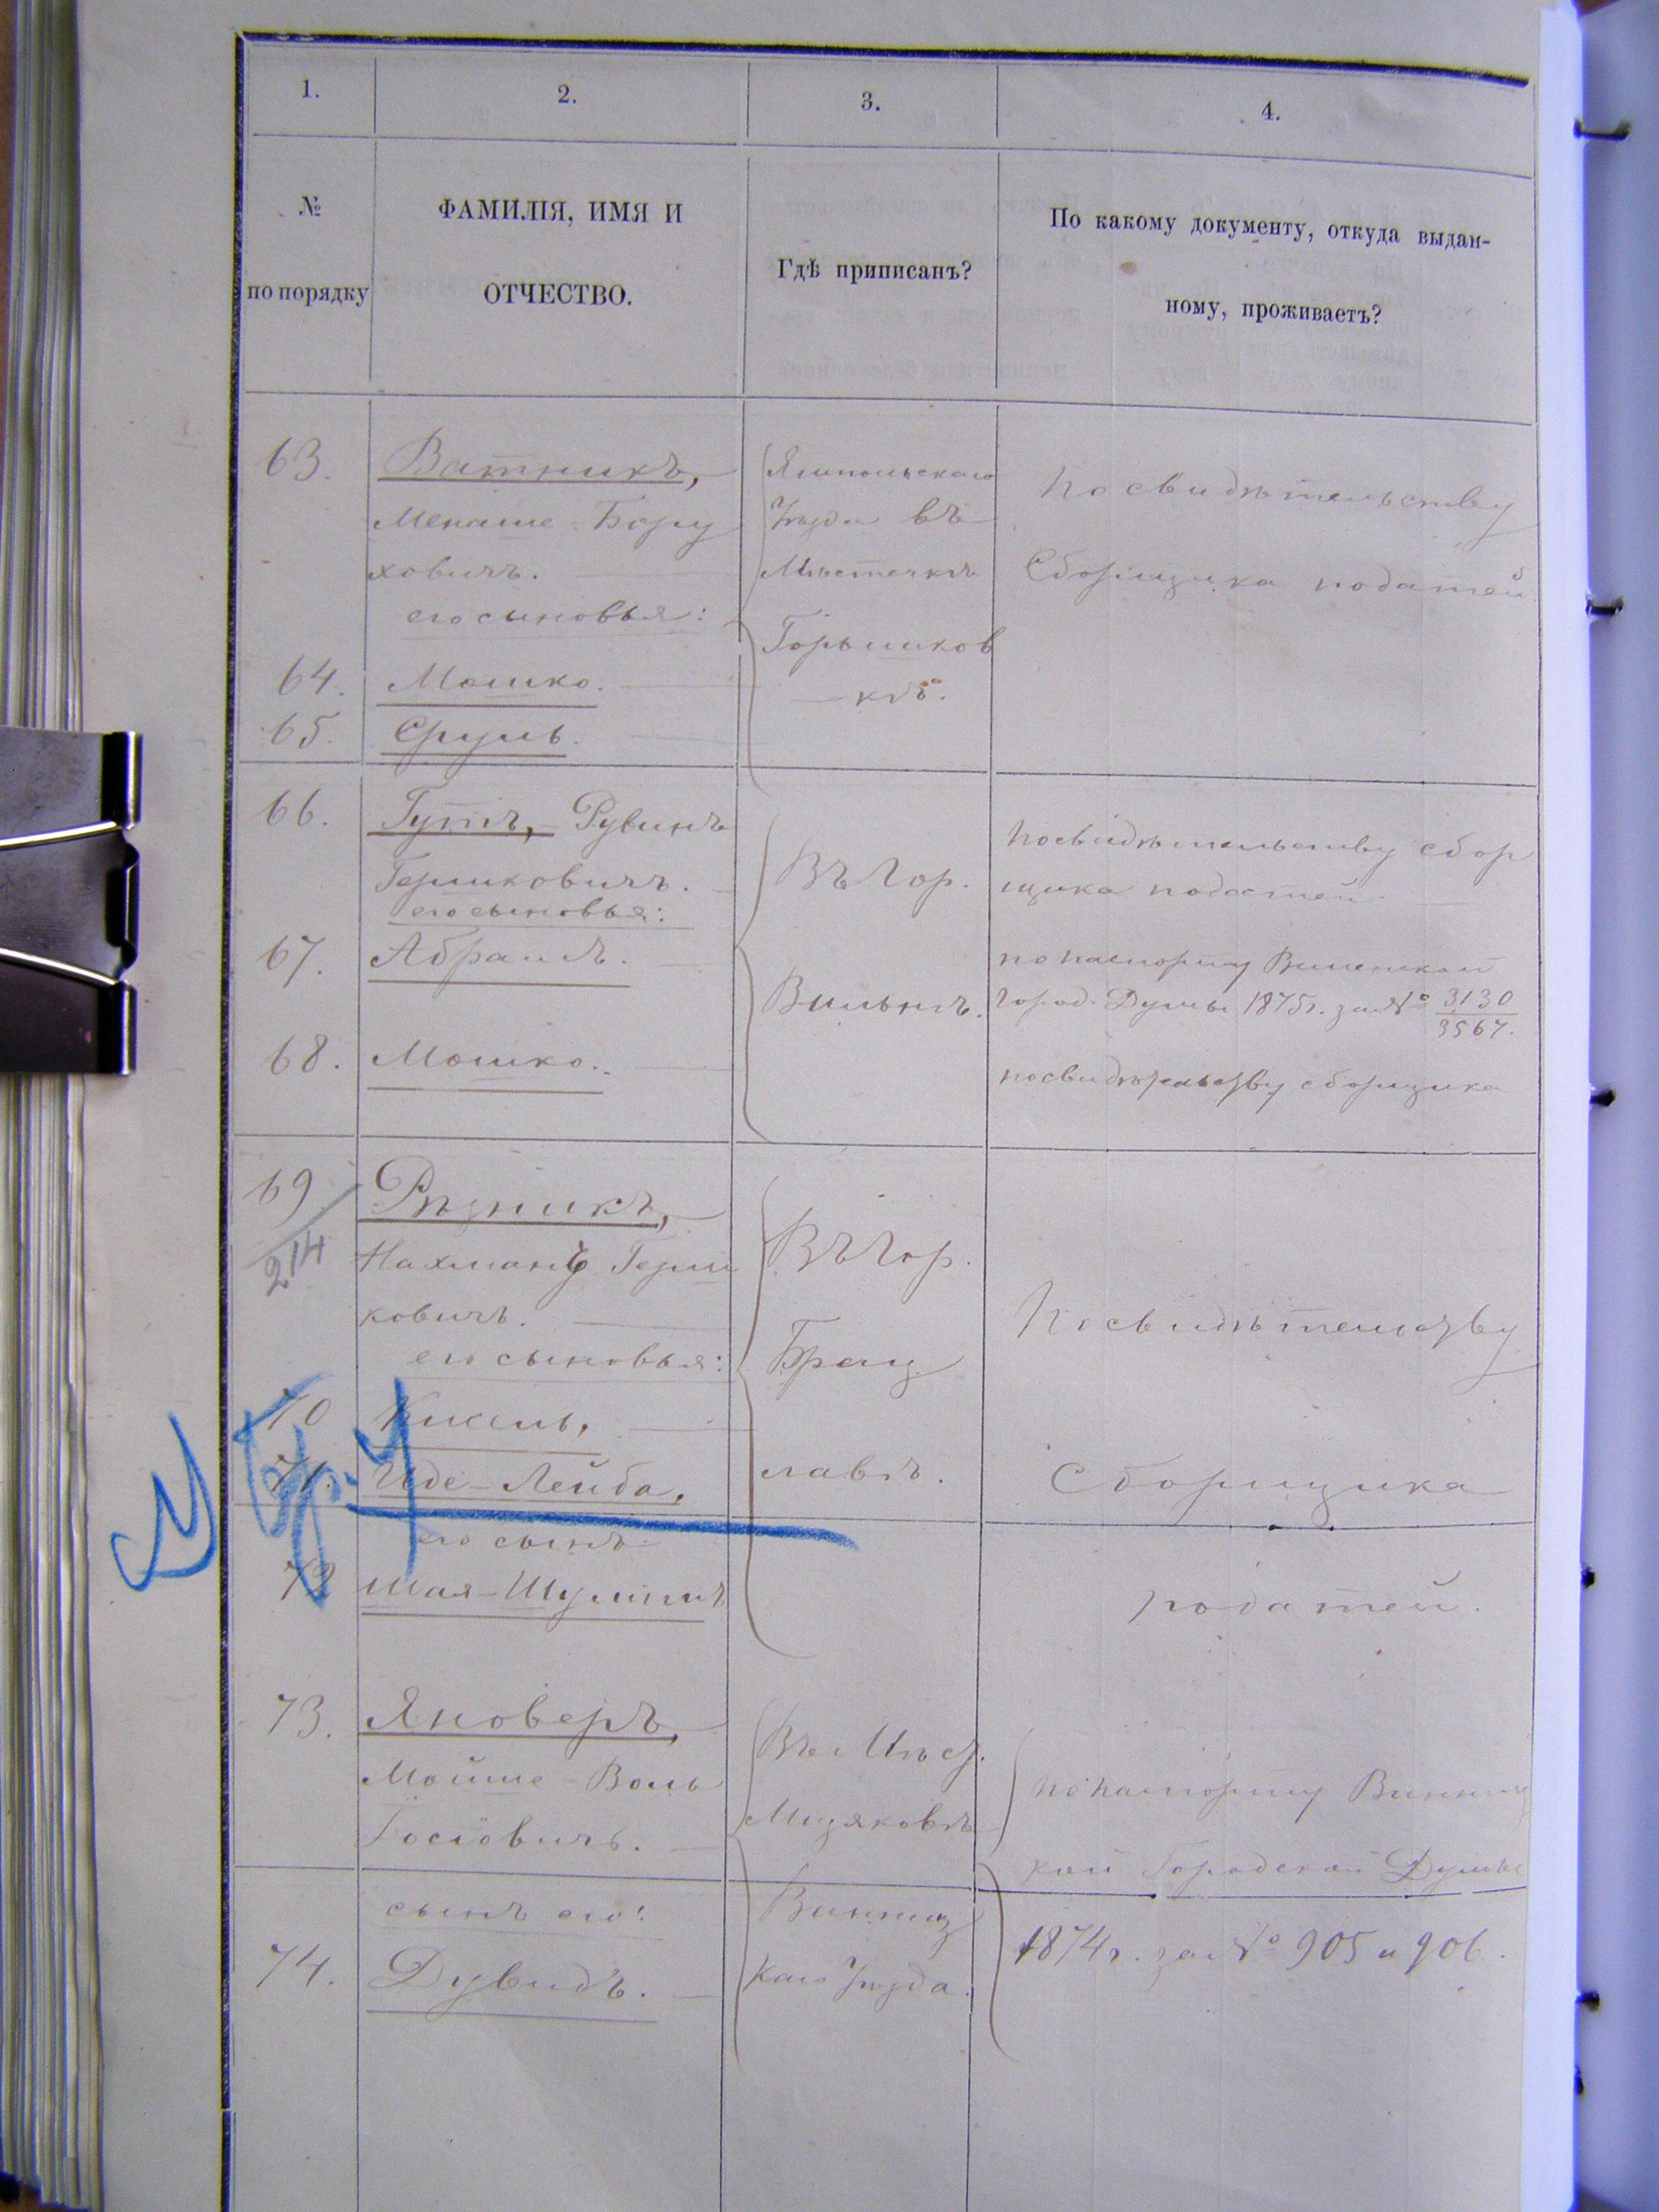 1.
2.
3.
4.
№
по порядку
ФАМИЛІЯ, ИМЯ И
ОТЧЕСТВО.
Гдѣ приписанъ?
По какому документу, откуда выдан-
ному, проживаетъ?
63.
Ватникъ,
Менаше-Бору
ховичъ.
его сыновья:
64.
Мошко.
65.
Сруль.
Ямпольскаго
Уѣзда въ
Мѣстечкѣ
По свидѣтельству
Сборщика податей
66.
Гутъ, - Рувинъ
Гершковичъ.
его сыновья:
67.
Абрамъ.
68.
Мошко.
Въ Гор.
Вильнѣ.
По свидѣтельству сбор
щика податей.
по паспорту Виленской
Город. Думы 1875г. за № 3130
3567.
по свидѣтельству сборщика
69
214
Рѣзникъ,
Нахманъ Герш
ковичъ.
его сыновья:
70
Кисиль,
71.
Иде-Лейба,
его сынъ
72
Шая-Шулимъ
Въ Гор.
Брац
лавѣ.
По свидѣтельству
Сборщика
податей.
73.
Яноверъ,
Мойше-Воль
Іосіовичъ.
сынъ его:
74.
Дувидъ.
Въ Мѣст.
Мизяковѣ
Винниц
каго Уѣзда.
по паспорту Винниц
кой Городской Думы
1874г. за № 905 и 906.